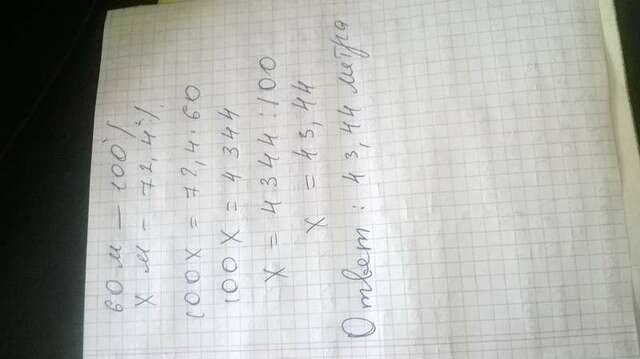 60 м — 100%
X м — 72,4%
100X = 72,4·60
100X = 4344
X = 4344:100
X = 43,44
Ответ: 43,44 метра